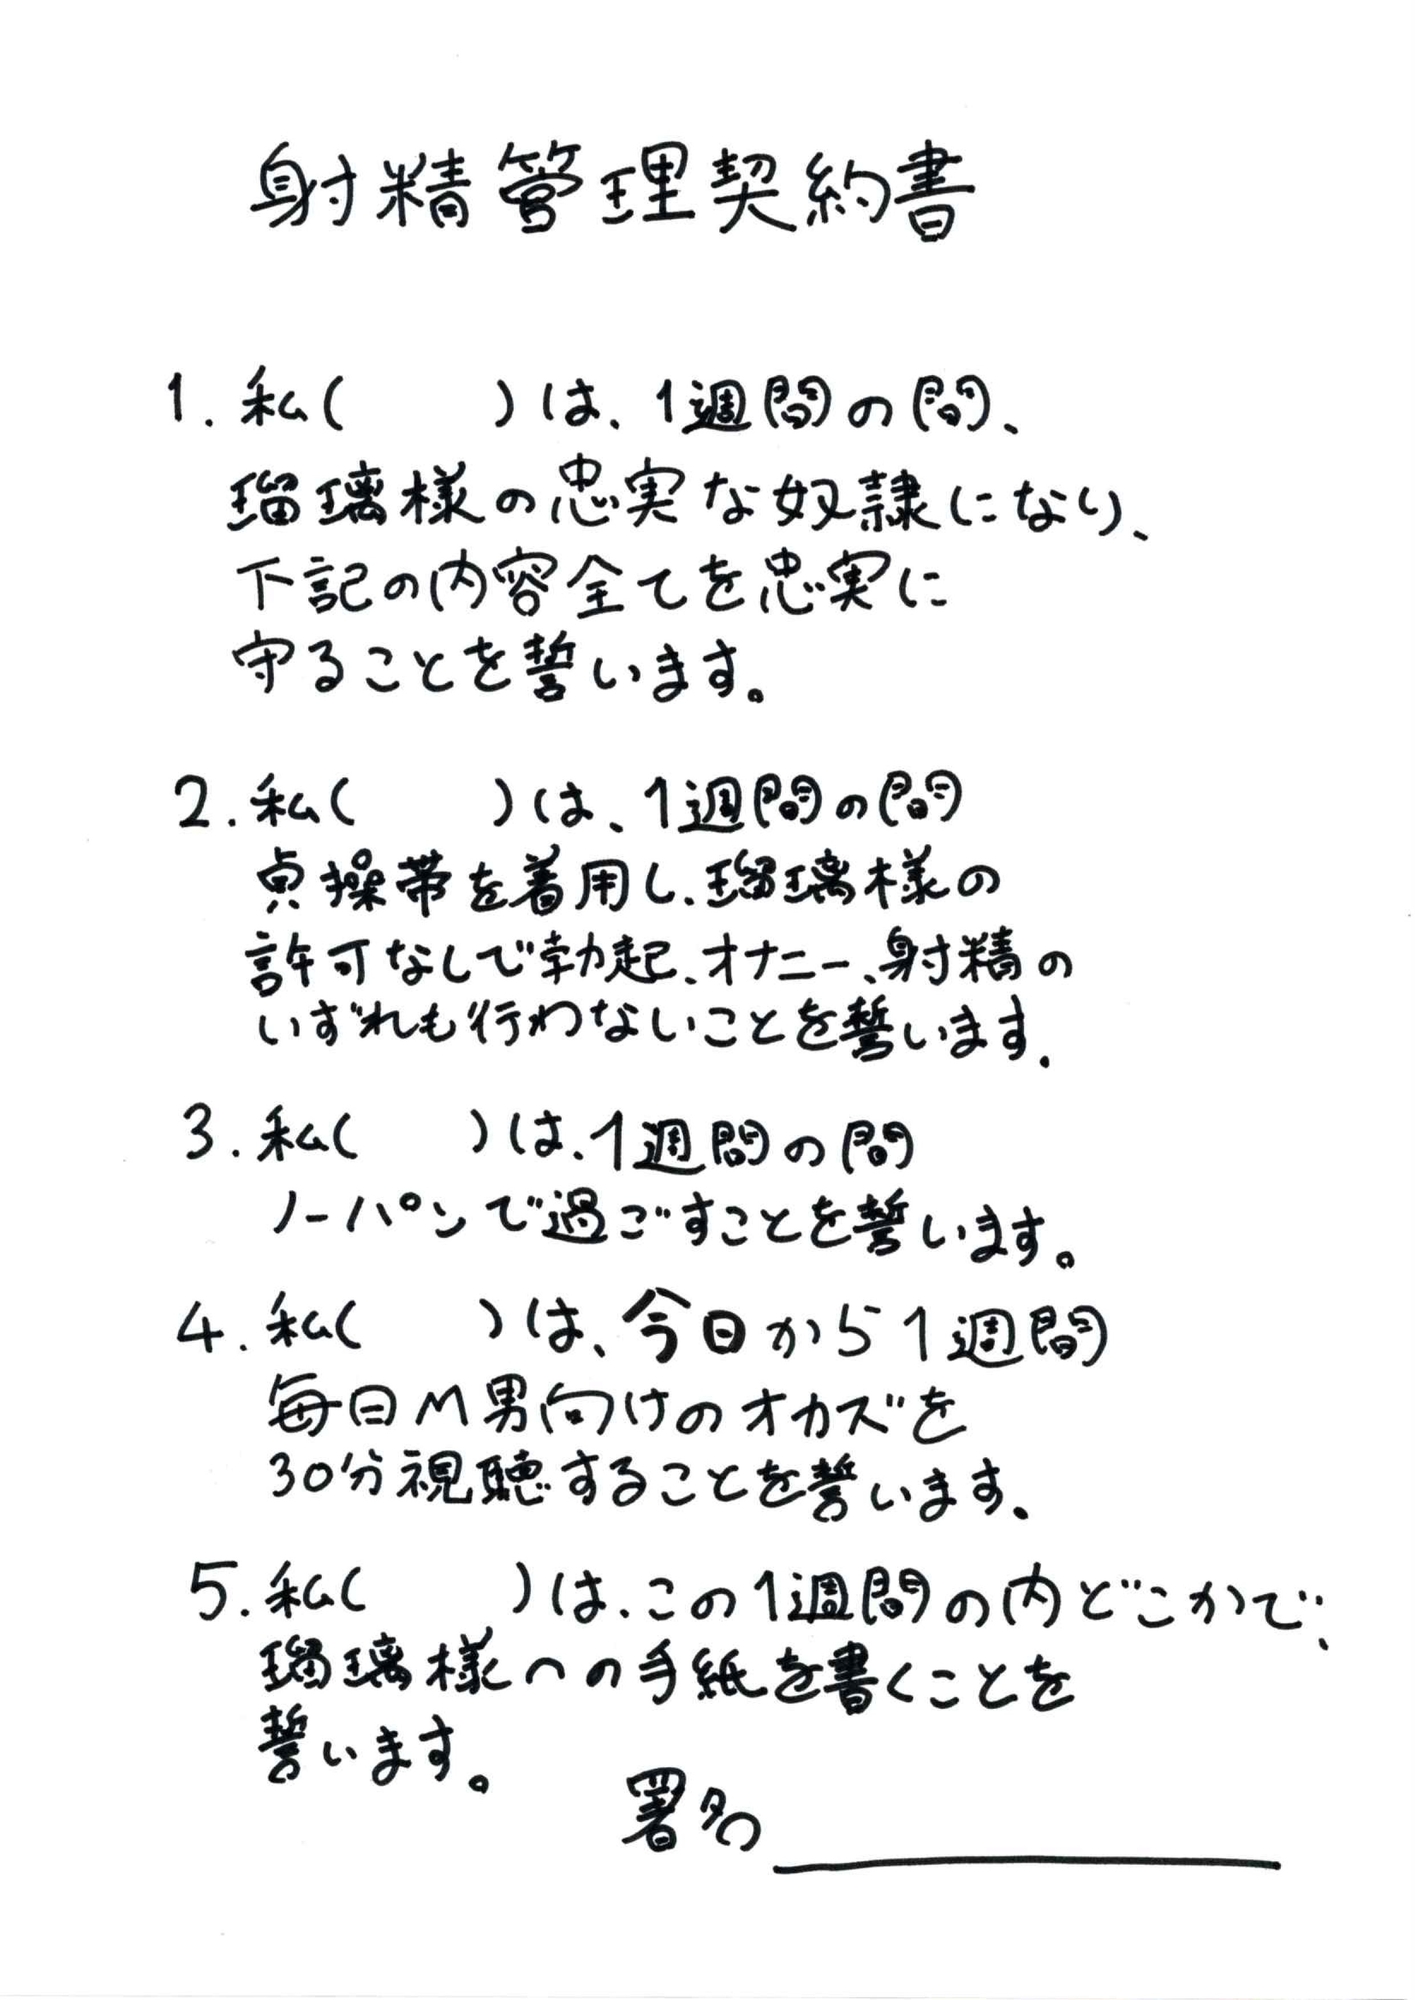 射精管理契約書
1. 私(　　)は、1週間の間、
瑠璃様の忠実な奴隷になり、
下記の内容全てを忠実に
守ることを誓います。
2. 私(　　)は、1週間の間
貞操帯を着用し、瑠璃様の
許可なしで勃起、オナニー、射精の
いずれも行わないことを誓います。
3. 私(　　)は、1週間の間
ノーパンで過ごすことを誓います。
4. 私(　　)は、今日から1週間
毎日M男向けのオカズを
30分視聴することを誓います。
5. 私(　　)は、この1週間の内どこかで、
瑠璃様への手紙を書くことを
誓います。
署名